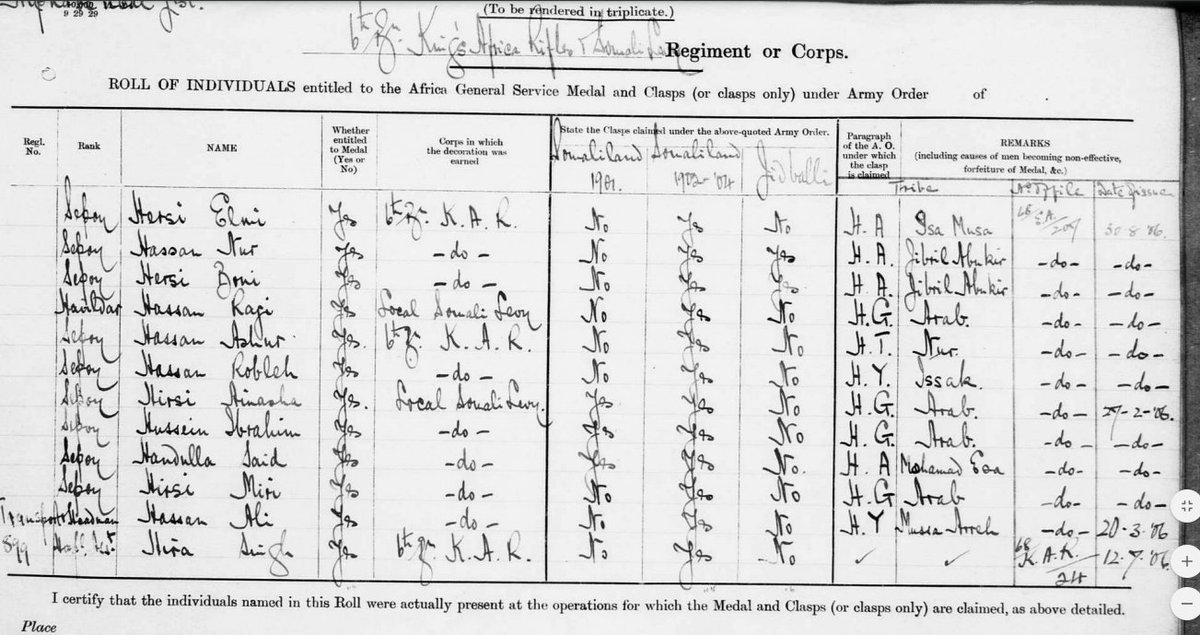 9 29 29
(To be rendered in triplicate.)
6th Bn. King's Africa Rifles & Somali Regiment or Corps.
ROLL OF INDIVIDUALS entitled to the Africa General Service Medal and Clasps (or clasps only) under Army Order of
Regl. No. Rank NAME Whether entitled to Medal (Yes or No) Corps in which the decoration was earned State the Clasps claimed under the above-quoted Army Order. Paragraph of the A. O. under which the clasp is claimed REMARKS (including causes of men becoming non-effective, forfeiture of Medal, &c.)
Somaliland 1901. Somaliland 1902-'04 Jidballi Tribe No of file Date of issue
Sepoy Hersi Elmi Yes 6th Bn. K. A. R. No Yes No H. A Isa Musa 30-8-'06.
Sepoy Hassan Nur Yes -do- No Yes Yes H. A. Jibril Abukir -do- -do-
Sepoy Hersi Boni Yes -do- No Yes Yes H. A. Jibril Abukir -do- -do-
Havildar Hassan Ragi Yes Local Somali Levy No Yes No H. G. Arab. -do- -do-
Sepoy Hassan Ashur Yes. 6th Bn. K. A. R. No Yes No H. T. Nur. -do- -do-
Sepoy Hassan Robleh Yes -do- No Yes No H. Y. Issak. -do- -do-
Sepoy Hirsi Ainasha Yes. Local Somali Levy. Yes Yes No H. G. Arab. -do- 27-2-'06.
Sepoy Hussein Ibrahim Yes -do- Yes Yes No H. G. Arab. -do- -do-
Sepoy Handulla Said Yes -do- Yes Yes No. H. A Mohamad Esa -do- -do-
Sepoy Hirsi Miri Yes -do- No Yes No H. G Arab -do- -do-
Transport Headman Hassan Ali Yes -do- No Yes No H. Y Mussa Arreh -do- 20-3-'06
899 Hira Singh Yes 6th Bn. K. A. R. No Yes No ✓ ✓ 68 K.A.R. 24 12-7-'06.
I certify that the individuals named in this Roll were actually present at the operations for which the Medal and Clasps (or clasps only) are claimed, as above detailed.
Place